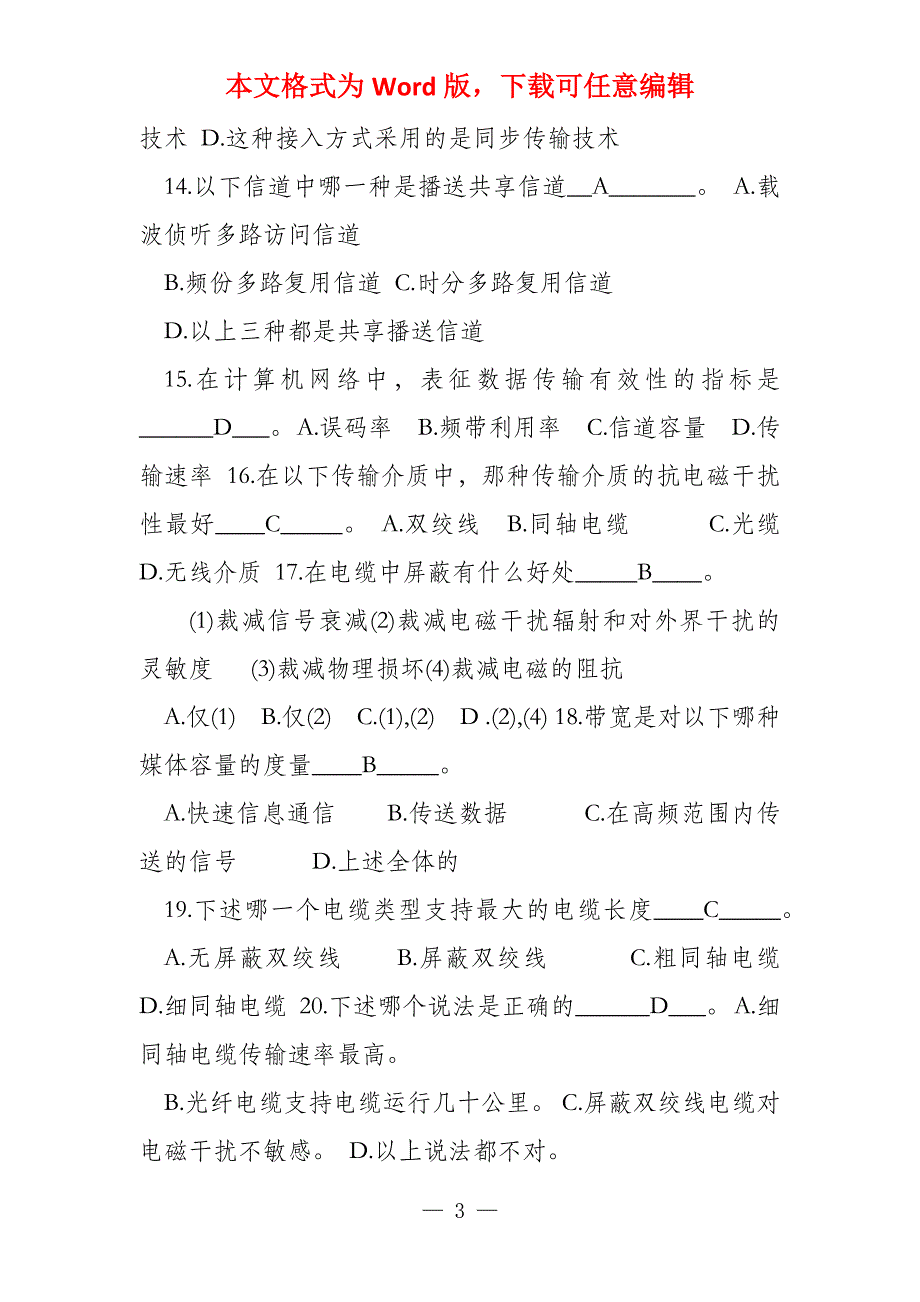 本文格式为 Word 版，下载可任意编辑
技术 D.这种接入方式采用的是同步传输技术
14.以下信道中哪一种是播送共享信道__A_______。 A.载
波侦听多路访问信道
B.频份多路复用信道 C.时分多路复用信道
D.以上三种都是共享播送信道
15.在计算机网络中，表征数据传输有效性的指标是
______D___。A.误码率 B.频带利用率 C.信道容量 D.传
输速率 16.在以下传输介质中，那种传输介质的抗电磁干扰
性最好____C_____。 A.双绞线 B.同轴电缆 C.光缆
D.无线介质 17.在电缆中屏蔽有什么好处_____B____。
(1)裁减信号衰减(2)裁减电磁干扰辐射和对外界干扰的
灵敏度 (3)裁减物理损坏(4)裁减电磁的阻抗
A.仅(1) B.仅(2) C.(1),(2) D .(2),(4) 18.带宽是对以下哪种
媒体容量的度量____B_____。
A.快速信息通信 B.传送数据 C.在高频范围内传
送的信号 D.上述全体的
19.下述哪一个电缆类型支持最大的电缆长度____C_____。
A.无屏蔽双绞线 B.屏蔽双绞线 C.粗同轴电缆
D.细同轴电缆 20.下述哪个说法是正确的______D___。A.细
同轴电缆传输速率最高。
B.光纤电缆支持电缆运行几十公里。 C.屏蔽双绞线电缆对
电磁干扰不敏感。 D.以上说法都不对。
— 3 —